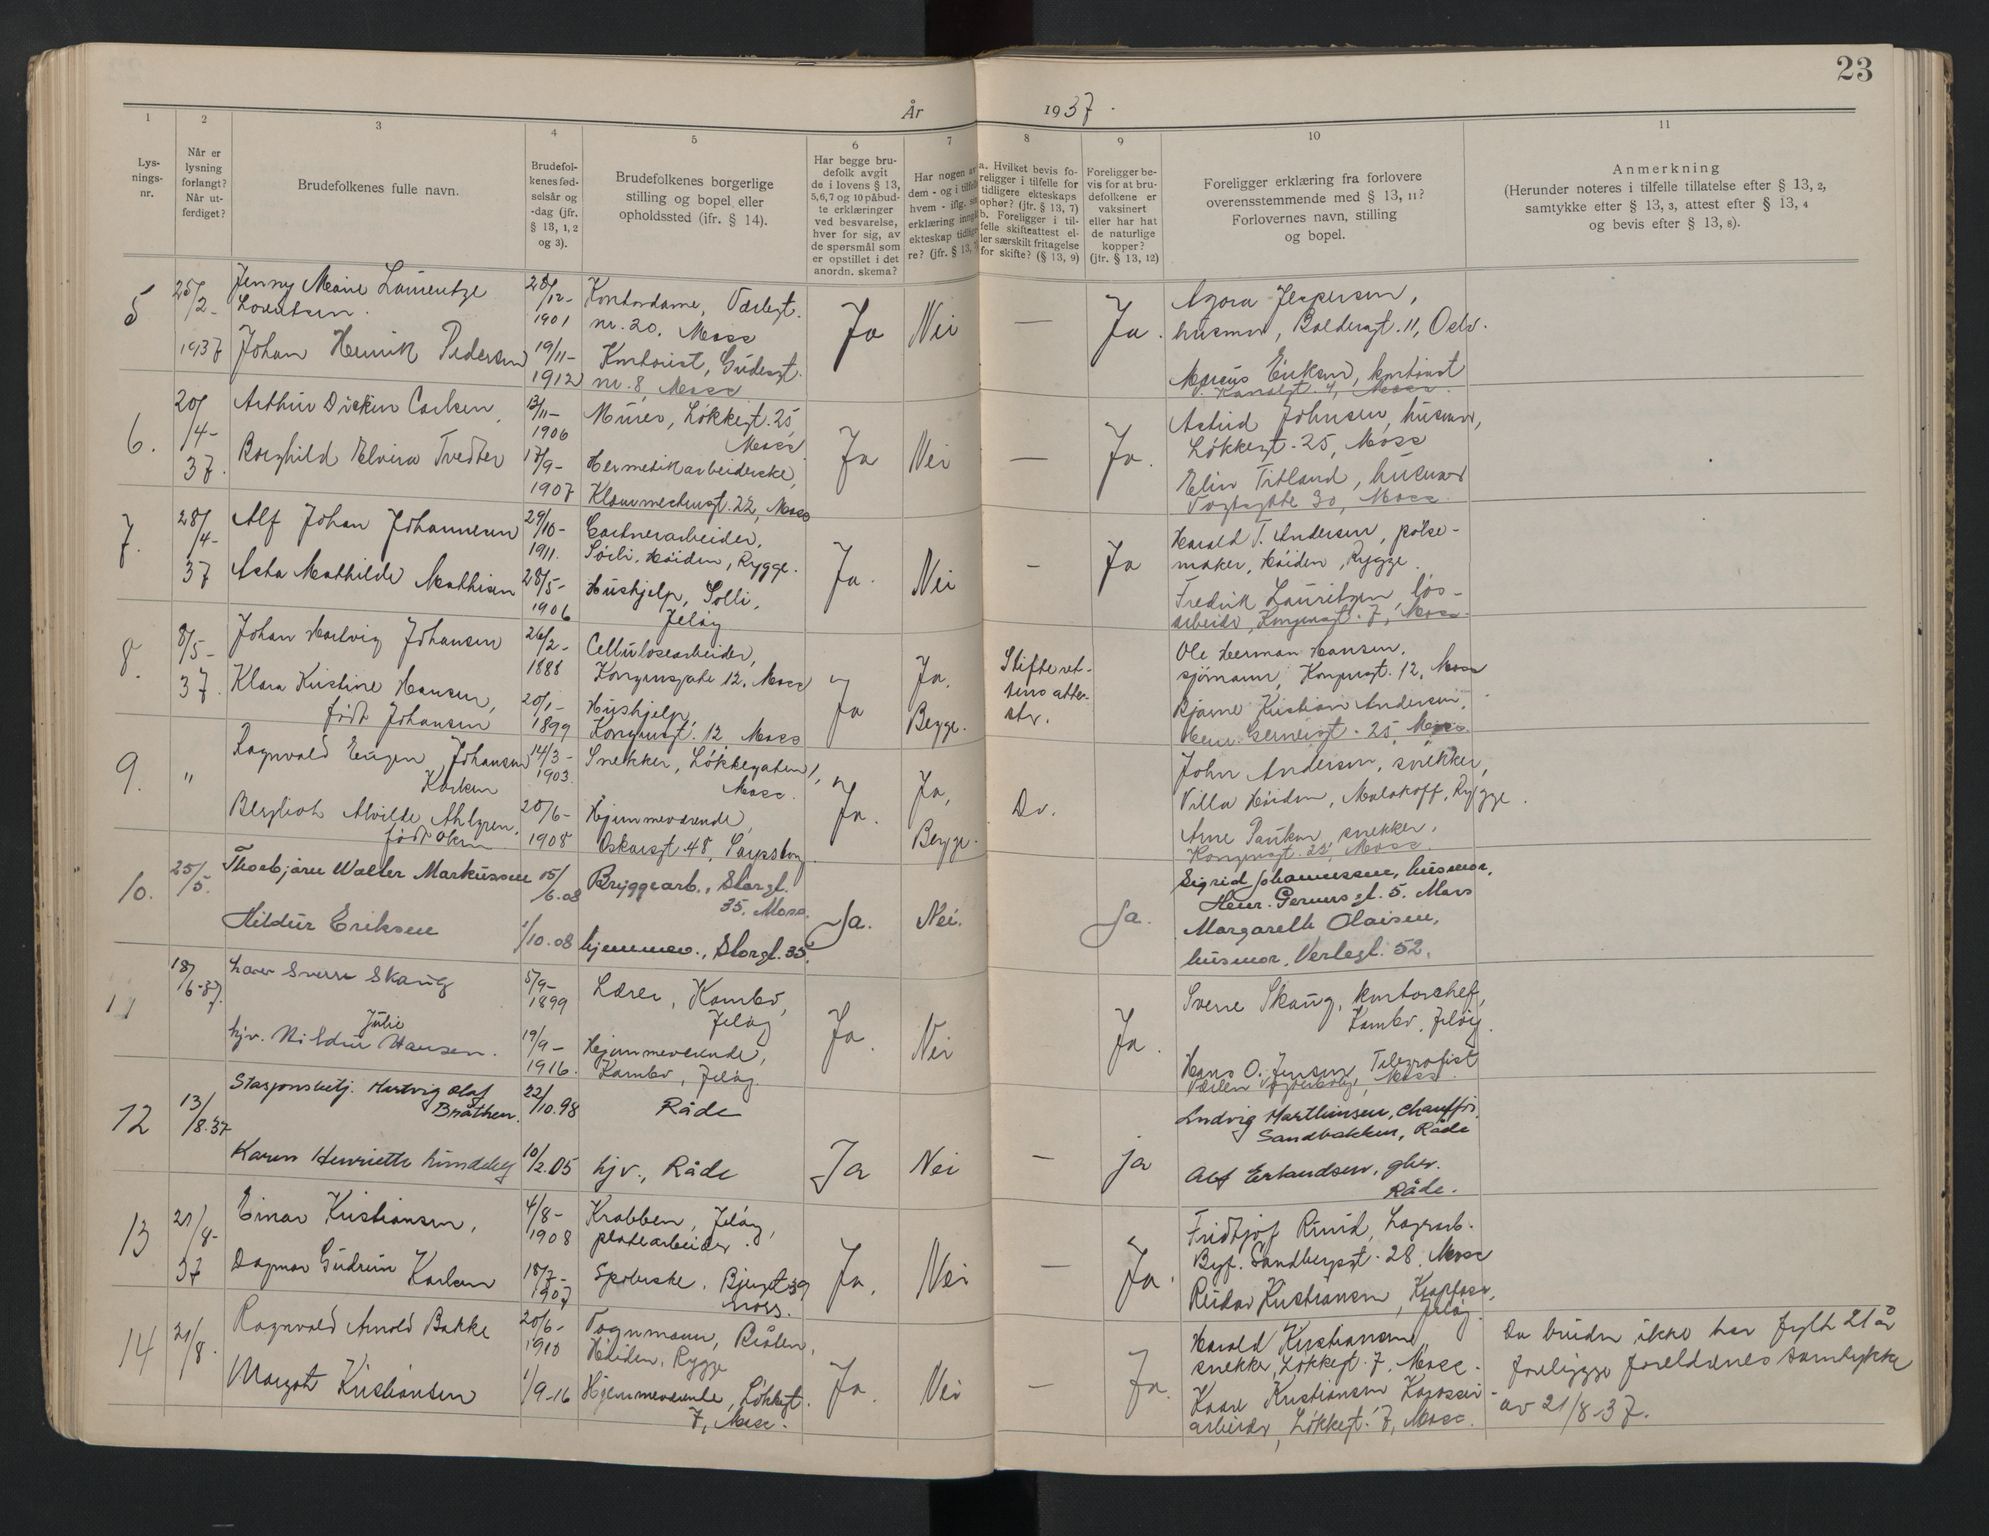 23
År 1937.
1 2 3 4 5 6 7 8 9 10 11
Lys-
nings-
nr.
Når er
lysning
forlangt?
Når ut-
ferdiget?
Brudefolkenes fulle navn.
Brudefol-
kenes fød-
selsår og
-dag (jfr.
§ 13, 1, 2
og 3).
Brudefolkenes borgerlige
stilling og bopel eller
opholdssted (ifr. § 14).
Har begge bru-
defolk avgit
de i lovens § 13,
5,6,7 og 10 påbud-
te erklæringer
ved besvarelse,
hver for sig, av
de spørsmål som
er opstillet i det
anordn. skema?
Har nogen av
dem - og i tilfelle
hvem - iflg.
erklæring inngått
ekteskap tidlige-
re? (jfr. § 13, 7)
a. Hvilket bevis fo-
religger i tilfelle for
tidligere ekteskaps
ophør? (jfr. § 13, 7)
b. Foreligger i til-
felle skifteattest el-
ler særskilt fritagelse
for skifte? (§ 13, 9)
Foreligger be-
vis for at bru-
defolkene er
vaksinert
eller har hat
de naturlige
kopper?
(jfr. § 13, 12)
Foreligger erklæring fra forlovere
overensstemmende med § 13, 11?
Forlovernes navn, stilling
og bopel.
Anmerkning
(Herunder noteres i tilfelle tillatelse efter § 13, 2,
samtykke efter § 13, 3, attest efter § 13, 4
og bevis efter § 13, 8).
5 25/2- 1937
Jenny Marie Laurentze
Lorentsen.
28/12- 1901
Kontordame, Værlegt.
nr. 20, Moss
Johan Henrik Pedersen
19/11- 1912
Kontorist, Gudesgt.
nr. 8, Moss
Ja Nei — Ja.
Agora Jespersen,
husmor, Baldersgt. 11, Oslo.
Marcus Eriksen, kontorist
V. Kanalgt. 4, Moss.
6. 20/4- 37.
Arthur Dicken Carlsen
13/11- 1906
Murer, Løkkegt. 25,
Moss
Borghild Elvira Tvedter
17/9- 1907
Hermetikarbeiderske,
22, Moss
Ja Nei — Ja.
Astrid Johnsen, husmor,
Løkkegt. 25, Moss
Elin Titland, husmor
Vogtsgate 30, Moss.
7. 28/4- 37
Alf Johan Johannesen
29/10- 1911.
Gartnerarbeider,
Sørli, Høiden, Rygge.
Asta Mathilde Mathisen
28/5- 1906
Hushjelp, Solli,
Jeløy
Ja. Nei - Ja
Harald T. Andersen, pølse-
maker, Høiden, Rygge.
Fredrik Lauritzen, løs-
arbeider, Kongensgt. 7, Moss.
8. 8/5- 37.
Johan Hartvig Johansen
26/2- 1888
Cellulosearbeider,
Kongensgate 12, Moss
Klara Kristine Hansen,
født Johansen
20/1- 1899
Hushjelp,
Kongensgt. 12 Moss
Ja Ja, Begge.
Skifteret-
tens attes-
ter.
Ole Herman Hansen,
sjømann, Kongensgt. 12, Moss
Bjarne Kristian Andersen,
Henr. Gernersgt. 25, Moss.
9. "
Ragnvald Eugen Johansen
Karlsen
14/3- 1903.
Snekker, Løkkegaten 1,
Moss.
Bergliot Alvilde Ahlgren,
født Olsen
20/6- 1908
Hjemmeværende,
Oskarsgt. 48, Sarpsborg.
Ja. Ja, Begge. Do.
John Andersen, snekker,
Villa Høiden, Malakoff, Rygge.
Arne Paulsen, snekker,
Kongensgt. 25, Moss.
10. 25/5.
Thorbjørn Walter Markussen
15/6.08
Bryggearb., Storgt.
35, Moss.
Hildur Eriksen
1/10.08
hjemmev., Storgt. 35,
Ja. Nei. Ja.
Sigrid Johannessen, husmor,
Henr. Gerners gt. 5. Moss
Margarethe Olaisen,
husmor, Verlegt. 52.
11 18/6-37.
Lærer Sverre Skaug
5/9- 1899
Lærer, Kambo,
Jeløy
hjv. Hildur Julie Hansen.
19/9- 1916.
Hjemmeværende,
Kambo, Jeløy.
Ja. Nei - Ja.
Sverre Skaug, kontorchef,
Kambo, Jeløy.
Hans O. Jensen, Telegrafist
Moss
12 13/8.37
Stasjonsbetj. Hartvig Olaf
Bråthen.
22/10.98
Råde
Karen Henriette Lundeby
10/2.05
hjv., Råde
Ja Nei — ja
Ludvig Marthinsen, chauffør,
Sandbakken, Råde
Alf Erlandsen, gbr.
Råde.
13 21/8- 37
Einar Kristiansen,
4/8- 1908
Krabben, Jeløy,
platearbeider.
Dagmar Gudrun Karlsen
18/7- 1907
Spolerske, 39
Moss.
Ja. Nei — Ja.
Fridtjof Ruud, Lagerarb.
Byf. Sandbergsgt. 28, Moss
Reidar Kristiansen,
Jeløy
14 21/8.
Ragnvald Arnold Bakke
20/6- 1910
Vognmann, Bråten,
Høiden, Rygge
Margot Kristiansen
1/9-16
Hjemmeværende, Løkkegt.
7, Moss.
Ja. Nei — Ja.
Harald Kristiansen,
snekker, Løkkegt. 7, Moss.
Kaare Kristiansen
arbeider, Løkkegt. 7, Moss.
Da bruden ikke har fyldt 21 år
foreligger foreldrenes samtykke
av 21/8-37.